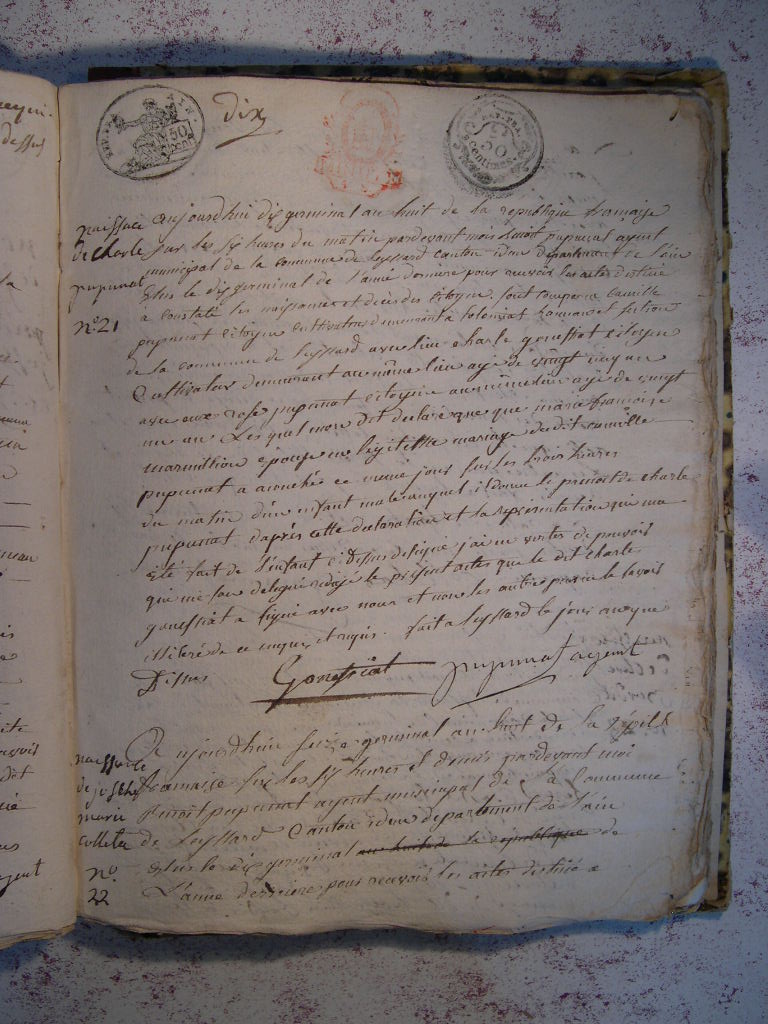 dix
50
REP. FRA.
50
centimes
naissance
de charle
pupunat
n.° 21
aujourdhui dix germinal an huit de la republique francaise
sur les six heures du matin pardevant moi Benoit pupunat agent
municipal de la commune de Leyssard canton idem departement de l'ain
Elus le dix germinal de l'anné derniere pour recevoir les actes destiné
a constaté les naissances et deces des citoyens, sont comparu camille
pupunat citoyen cultivateur demeurant a
de la commune de Leyssard avec lui charle gonefriat citoyen
Cultivateur demeurant au même lieu agé de vingt
avec eux rose pupunat citoyene au même lieu agé de vingt
un an. Les quel mon dit declaré que que marie francoise
marmillion epouse en legitesme mariage du dit camille
pupunat a acouchée ce meme jours sus les trois heures
du matin d'un enfant male auquel il donne le prenom de charle
pupunat. d'aprés cette declaration et la representation qui ma
Eté fait de l'enfant ci dessus designé j'ai en vertus de pouvois
qui me son delegué redigé le présent actes que le dit charle
gonefriat a signé avec nous et non les autres pour ne le savoir
illiteré de ce enquis et requis. fait a Leyssard le jour an que
Dessus Gonefriat pupunat agent
naissance
de joseph
marie
colletta
n°
22
Ce aujourdhui seize germinal an huit de la répile
francaise sus les six heures et demis pardevant moi
Benoit pupunat agent municipal de la commune
de Leyssard Canton idem departement de l'ain
Elus le dix germinal an huit de la republique de
L'anné derniere pour recevoir les actes destiné a